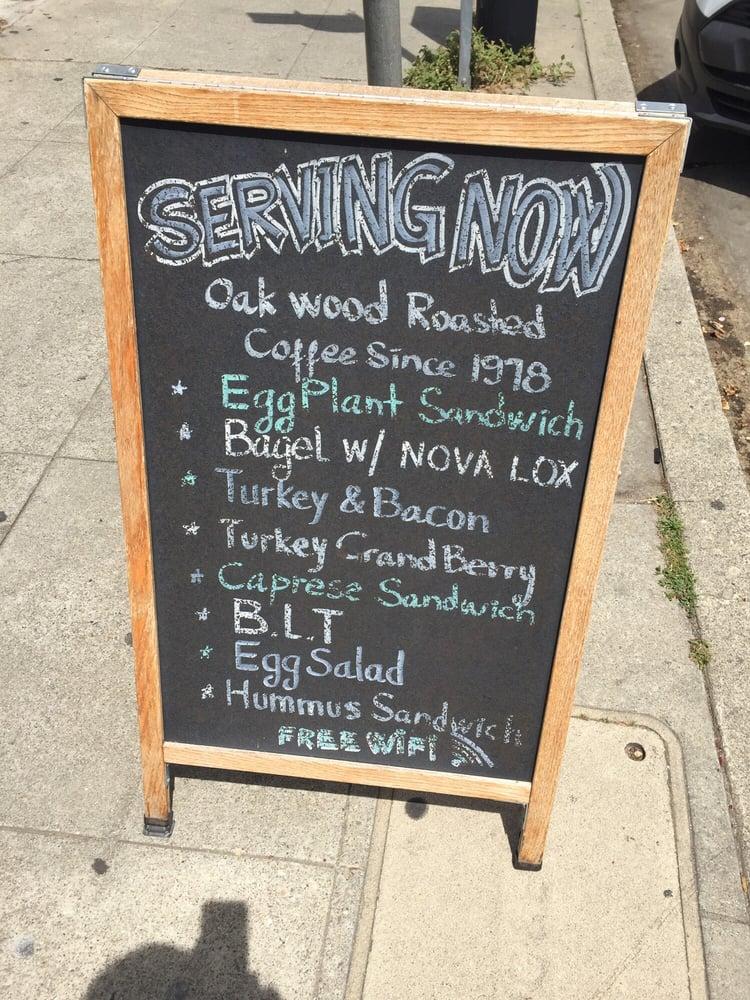 SERVING NOW
Oak wood Roasted
Coffee Since 1978
* EggPlant Sandwich
* Bagel w/ NOVA LOX
* Turkey & Bacon
* Turkey Grand Berry
* Caprese Sandwich
* B.L.T
* Egg Salad
* Hummus Sandwich
FREE WiFi